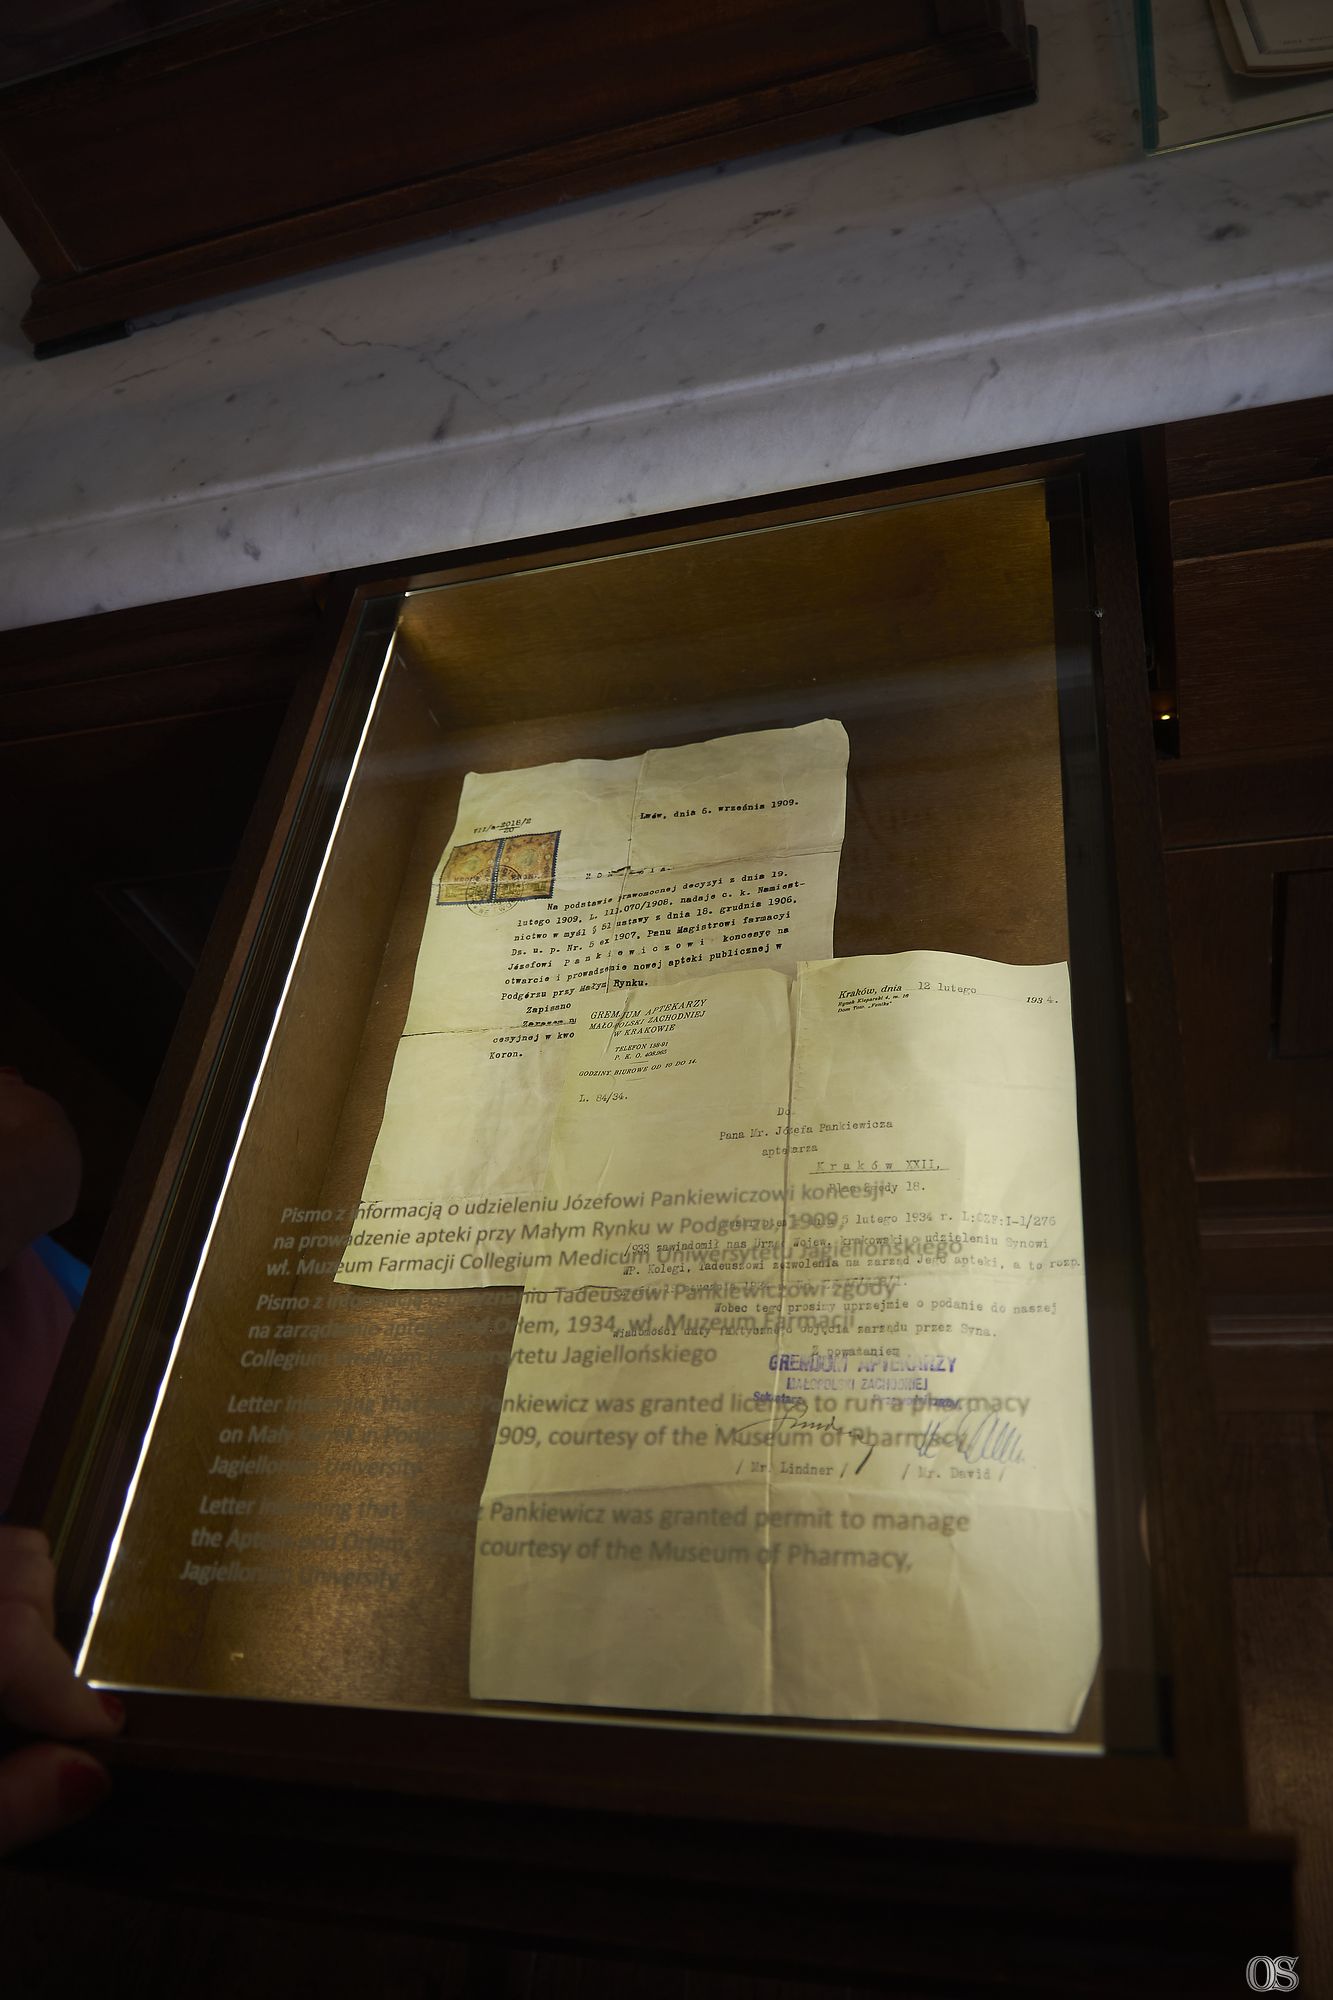 Lwów, dnia 6. września 1909.
VII/a-2018/2
20
Na podstawie prawomocnej decyzyi z dnia 19.
lutego 1909, L. 111.070/1908, nadaje c. k. Namiest-
nictwo w myśl § 51 ustawy z dnia 18. grudnia 1906,
Dz. u. p. Nr. 5 ex 1907, Panu Magistrowi farmacyi
Józefowi Pankiewiczowi koncesyę na
otwarcie i prowadzenie nowej apteki publicznej w
Podgórzu przy Małym Rynku.
Zapisano
Zarazem
cesyjnej w kwo
Koron.
GREMJUM APTEKARZY
MAŁOPOLSKI ZACHODNIEJ
W KRAKOWIE
TELEFON 158-91
P. K. O. 408.065
GODZINY BIUROWE OD 10 DO 14.
L. 84/34.
Kraków, dnia 12 lutego 1934.
Rynek Kleparski 4, m. 16
Dom Tow. „Feniks"
Do
Pana Mr. Józefa Pankiewicza
aptekarza
Kraków XXII.
Plac Zgody 18.
5 lutego 1934 r. L:OZF:I-1/276
/933 zawiadomił nas Urząd Wojew. krakowski o udzieleniu Synowi
WP. Kolegi, Tadeuszowi zezwolenia na zarząd Jego apteki, a to rozp.
Wobec tego prosimy uprzejmie o podanie do naszej
wiadomości daty faktycznego objęcia zarządu przez Syna.
Z poważaniem
GREMJUM APTEKARZY
MAŁOPOLSKI ZACHODNIEJ
Sekretarz
Przewodniczący
/ Mr. Lindner /
/ Mr. David /
Pismo z informacją o udzieleniu Józefowi Pankiewiczowi koncesji
na prowadzenie apteki przy Małym Rynku w Podgórzu, 1909,
wł. Muzeum Farmacji Collegium Medicum Uniwersytetu Jagiellońskiego
Pismo z informacją o przyznaniu Tadeuszowi Pankiewiczowi zgody
na zarządzanie apteką Pod Orłem, 1934, wł. Muzeum Farmacji
Collegium Medicum Uniwersytetu Jagiellońskiego
Letter informing that Józef Pankiewicz was granted licence to run a pharmacy
on Mały Rynek in Podgórze, 1909, courtesy of the Museum of Pharmacy,
Jagiellonian University
Letter informing that Tadeusz Pankiewicz was granted permit to manage
the Apteka pod Orłem, 1934, courtesy of the Museum of Pharmacy,
Jagiellonian University
OS